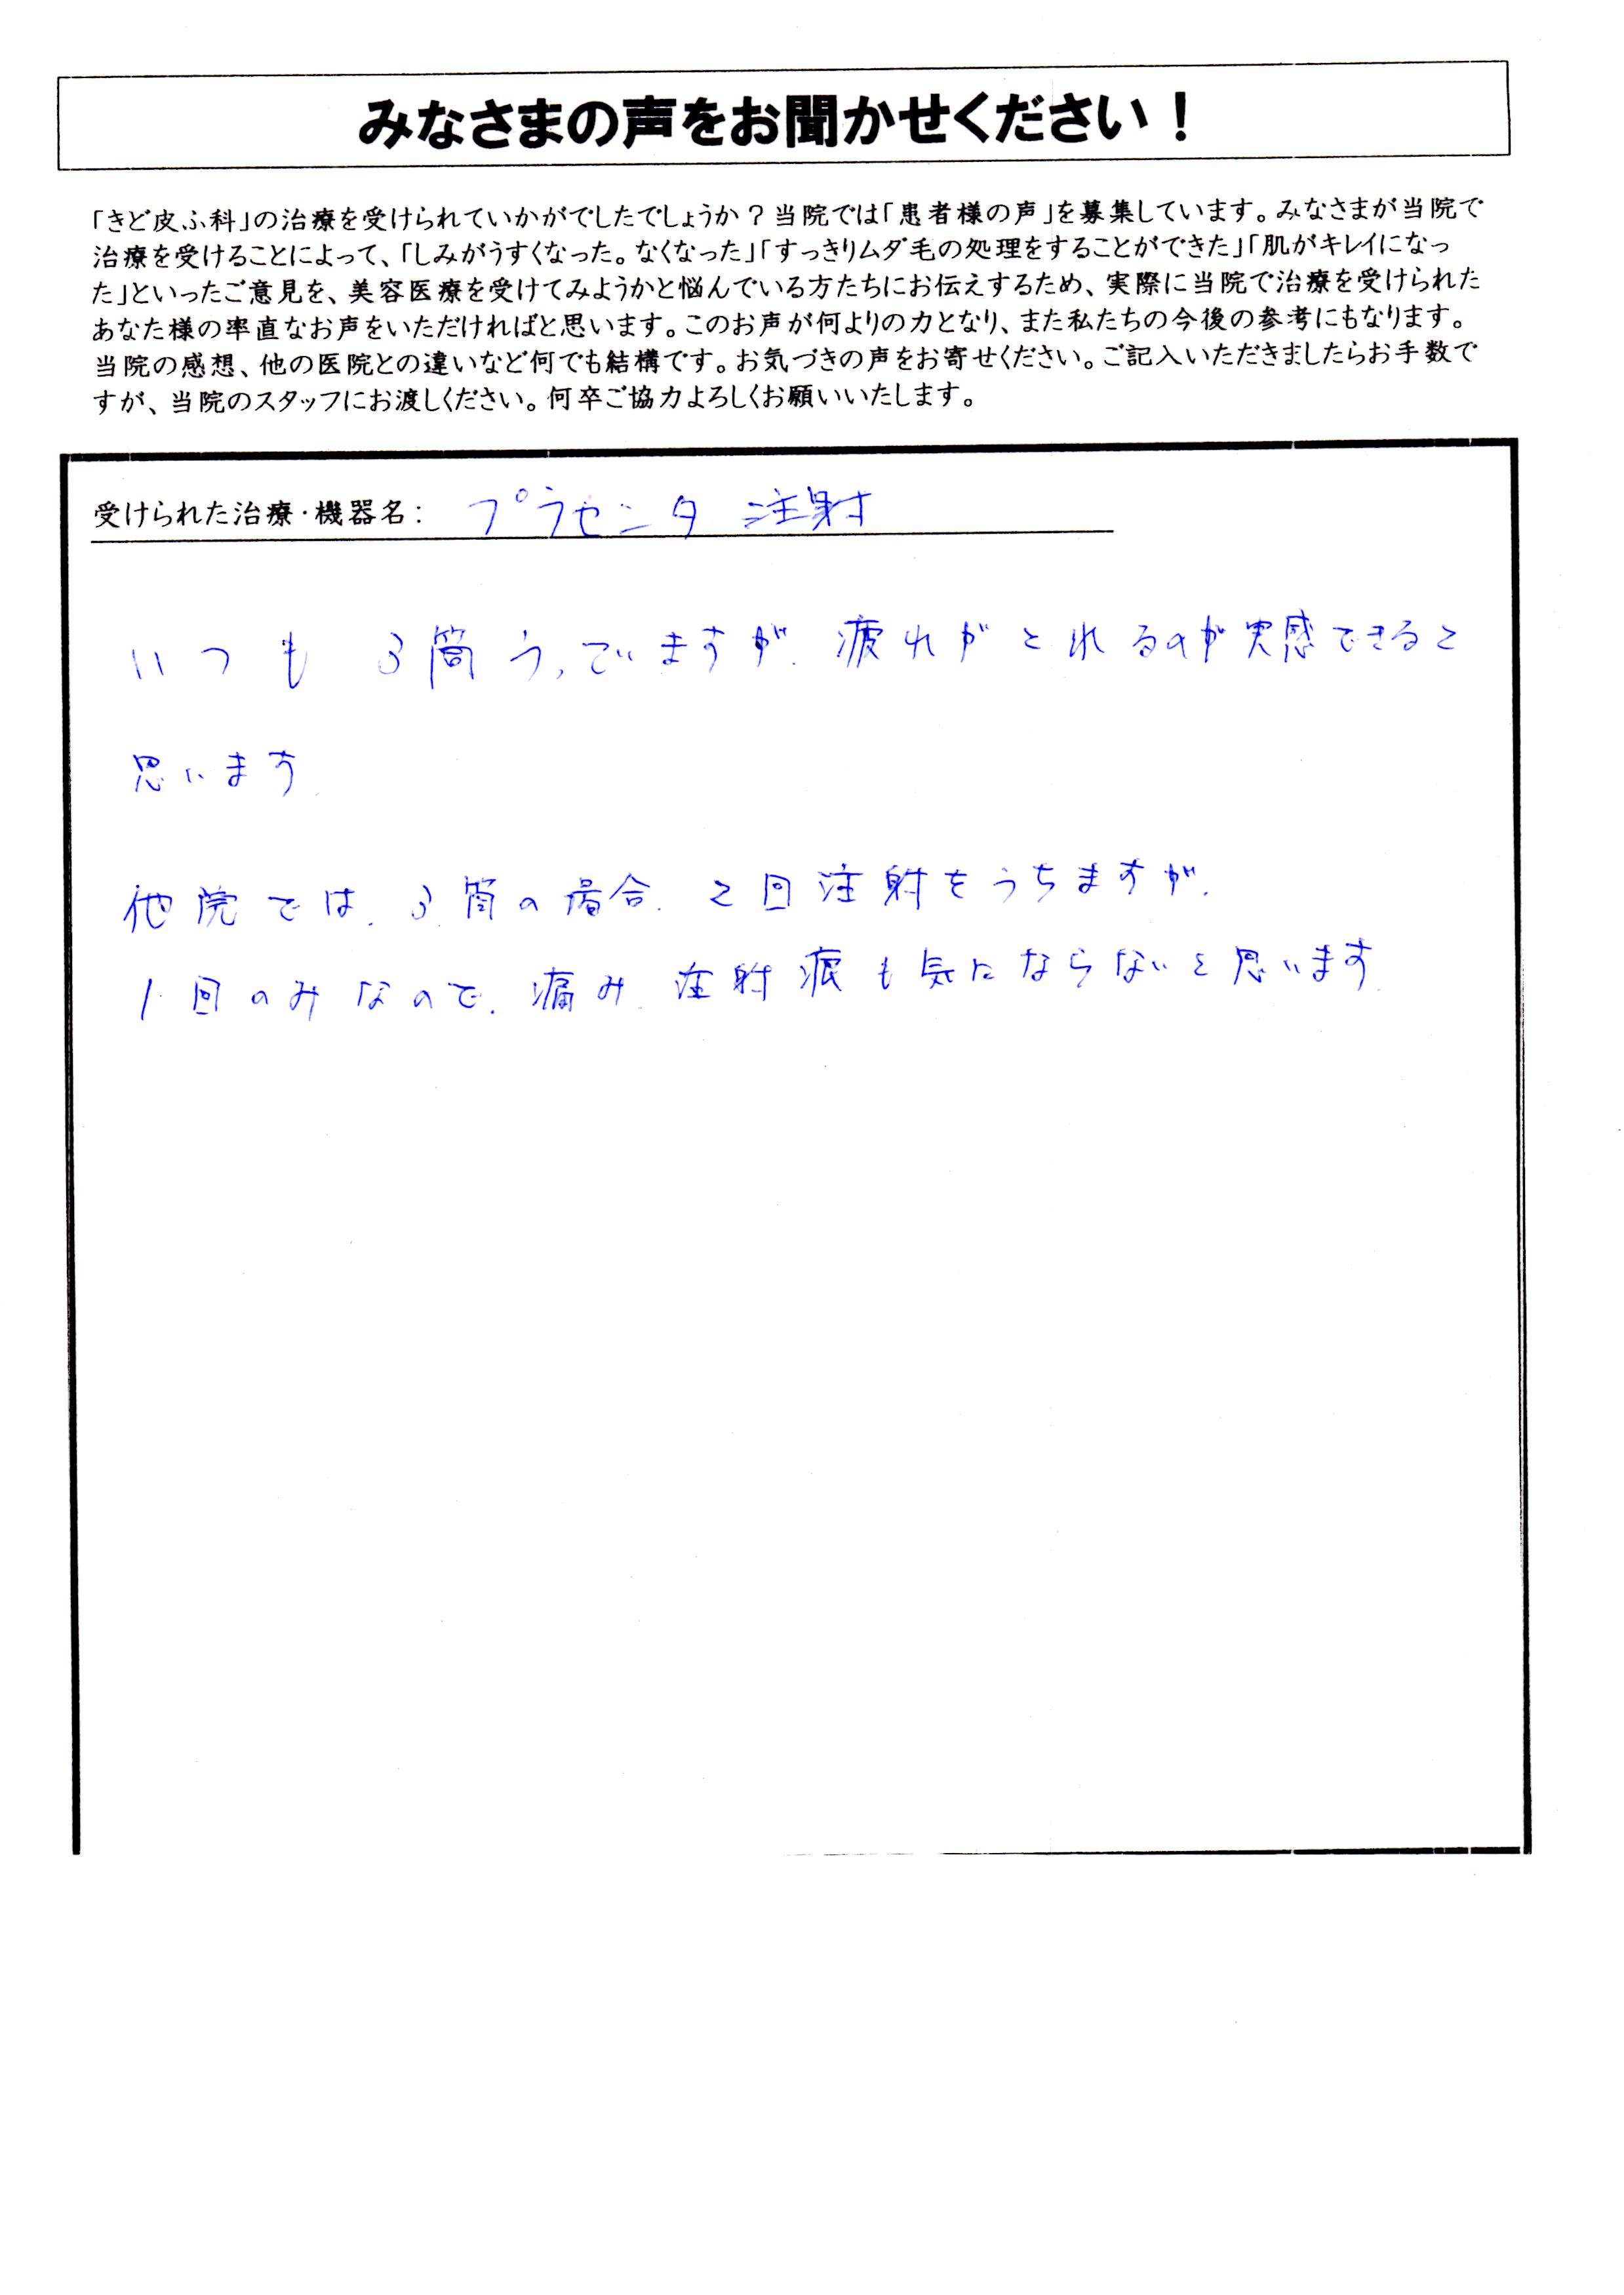 みなさまの声をお聞かせください！
「きど皮ふ科」の治療を受けられていかがでしたでしょうか？当院では「患者様の声」を募集しています。みなさまが当院で
治療を受けることによって、「しみがうすくなった。なくなった」「すっきりムダ毛の処理をすることができた」「肌がキレイになっ
た」といったご意見を、美容医療を受けてみようかと悩んでいる方たちにお伝えするため、実際に当院で治療を受けられた
あなた様の率直なお声をいただければと思います。このお声が何よりの力となり、また私たちの今後の参考にもなります。
当院の感想、他の医院との違いなど何でも結構です。お気づきの声をお寄せください。ご記入いただきましたらお手数で
すが、当院のスタッフにお渡しください。何卒ご協力よろしくお願いいたします。
受けられた治療・機器名： プラセンタ 注射
いつも 3筒うっていますが、疲れがとれるのが実感できると
思います。
他院では、3筒の場合、2回注射をうちますが、
1回のみなので、痛み、注射痕も気にならないと思います。